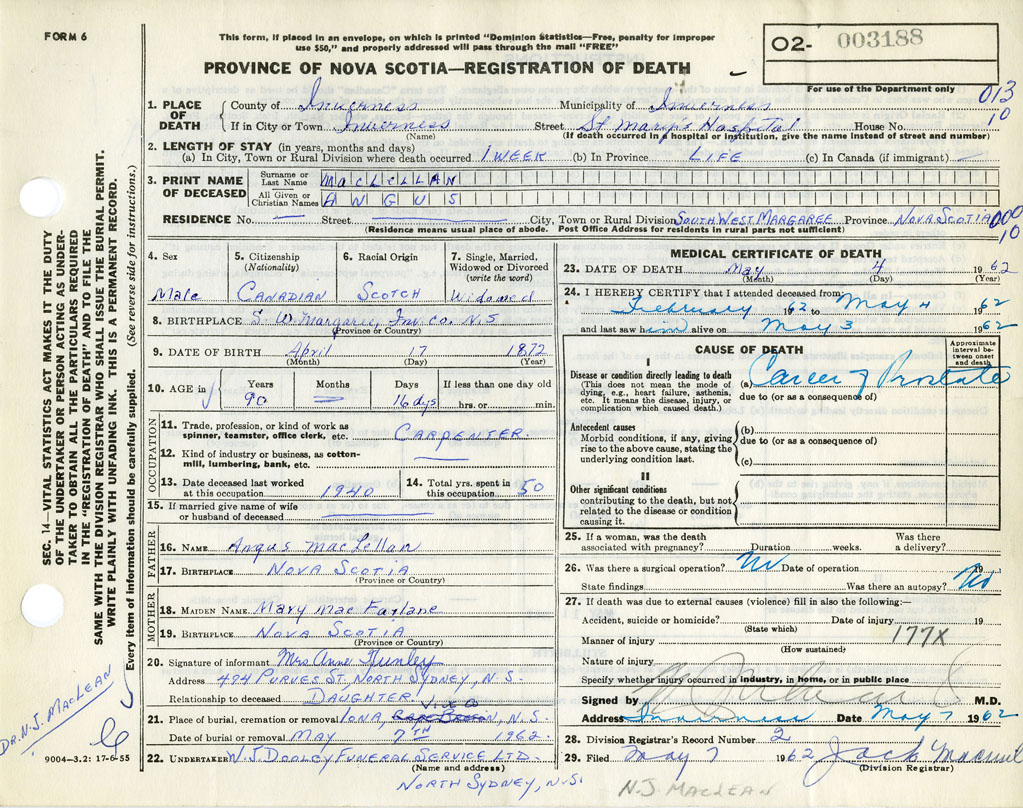 FORM 6
This form, if placed in an envelope, on which is printed "Dominion Statistics—Free, penalty for improper
use $50," and properly addressed will pass through the mail "FREE"
PROVINCE OF NOVA SCOTIA—REGISTRATION OF DEATH
O2- 003188
For use of the Department only
013
10
1. PLACE OF DEATH County of Inverness Municipality of Inverness
If in City or Town Inverness Street St Mary's Hospital House No.
(Name) (If death occurred in a hospital or institution, give the name instead of street and number)
2. LENGTH OF STAY (in years, months and days)
(a) In City, Town or Rural Division where death occurred 1 WEEK (b) In Province LIFE (c) In Canada (if immigrant) —
3. PRINT NAME OF DECEASED Surname or Last Name MacLELLAN
All Given or Christian Names ANGUS
RESIDENCE No. — Street — City, Town or Rural Division SOUTH WEST MARGAREE Province NOVA SCOTIA
(Residence means usual place of abode. Post Office Address for residents in rural parts not sufficient)
000
10
4. Sex 5. Citizenship (Nationality) 6. Racial Origin 7. Single, Married, Widowed or Divorced (write the word)
Male CANADIAN SCOTCH Widowed
8. BIRTHPLACE S. W. Margaree, Inv. co. N.S
(Province or Country)
9. DATE OF BIRTH April 17 1872
(Month) (Day) (Year)
10. AGE in Years Months Days If less than one day old
90 — 16 dys hrs. or min.
OCCUPATION
11. Trade, profession, or kind of work as
spinner, teamster, office clerk, etc. CARPENTER
12. Kind of industry or business, as cotton-
mill, lumbering, bank, etc. —
13. Date deceased last worked at this occupation 1940 14. Total yrs. spent in this occupation 50
15. If married give name of wife
or husband of deceased —
FATHER
16. NAME Angus MacLellan
17. BIRTHPLACE NOVA SCOTIA
(Province or Country)
MOTHER
18. MAIDEN NAME Mary Mac Farlane
19. BIRTHPLACE NOVA SCOTIA
(Province or Country)
20. Signature of informant Mrs Anne
Address 474 PURVES ST, NORTH SYDNEY, N.S.
Relationship to deceased DAUGHTER
21. Place of burial, cremation or removal IONA, VIC. CO N.S.
Date of burial or removal MAY 7TH 1962
22. UNDERTAKER W. J. DOOLEY FUNERAL SERVICE LTD.
(Name and address)
NORTH SYDNEY, N.S.
MEDICAL CERTIFICATE OF DEATH
23. DATE OF DEATH May 4 1962
(Month) (Day) (Year)
24. I HEREBY CERTIFY that I attended deceased from
February 1962 to May 4 1962
and last saw him alive on May 3 1962
CAUSE OF DEATH
Approximate interval between onset and death
I
Disease or condition directly leading to death
(This does not mean the mode of
dying, e.g., heart failure, asthenia,
etc. It means the disease, injury, or
complication which caused death.)
(a) Cancer of Prostate
due to (or as a consequence of)
Antecedent causes
Morbid conditions, if any, giving
rise to the above cause, stating the
underlying condition last.
(b)
due to (or as a consequence of)
(c)
II
Other significant conditions
contributing to the death, but not
related to the disease or condition
causing it.
25. If a woman, was the death Was there
associated with pregnancy? Duration weeks. a delivery?
26. Was there a surgical operation? No Date of operation 19
State findings Was there an autopsy? No
27. If death was due to external causes (violence) fill in also the following:—
Accident, suicide or homicide? Date of injury 19
(State which)
177X
Manner of injury
(How sustained)
Nature of injury
Specify whether injury occurred in industry, in home, or in public place
Signed by M.D.
Address Inverness Date May 7 1962
28. Division Registrar's Record Number 2
29. Filed May 7 1962 Jack
(Division Registrar)
N.J. MACLEAN
SEC. 14—VITAL STATISTICS ACT MAKES IT THE DUTY
OF THE UNDERTAKER OR PERSON ACTING AS UNDER-
TAKER TO OBTAIN ALL THE PARTICULARS REQUIRED
IN THE "REGISTRATION OF DEATH" AND TO FILE THE
SAME WITH THE DIVISION REGISTRAR WHO SHALL ISSUE THE BURIAL PERMIT.
WRITE PLAINLY WITH UNFADING INK. THIS IS A PERMANENT RECORD.
Every item of information should be carefully supplied. (See reverse side for instructions.)
DR. N.J. MACLEAN
9004-3.2: 17-6-55